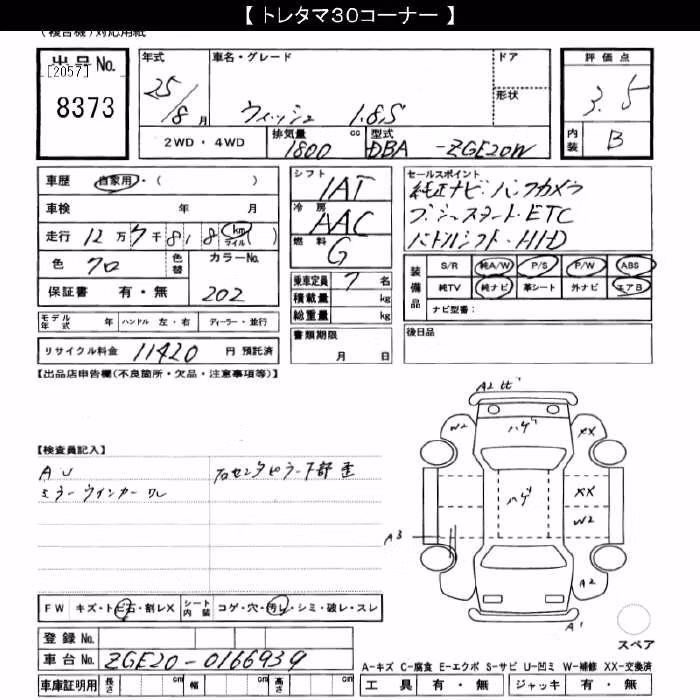 【 トレタマ30コーナー 】
(複合機)対応用紙
出品No.
[2057]
8373
年式 25/8月
車名・グレード ウィッシュ 1.8S
ドア
形状
評価点 3.5
内装 B
2WD・4WD
排気量 1800 cc
型式 DBA-ZGE20W
車歴 自家用・( )
車検 年 月
走行 12万7千818 km マイル ( )
色 クロ 色替 カラーNo. 202
保証書 有・無
シフト IAT
冷房 AAC
燃料 G
乗車定員 7名
積載量 kg
総重量 kg
書類期限 月 日
セールスポイント
純正ナビ・バックカメラ
プッシュスタート・ETC
パドルシフト・HID
装備品 S/R 純A/W P/S P/W ABS
純TV 純ナビ 革シート 外ナビ エアB
ナビ型番:
後日品
モデル年式 年 ハンドル 左・右 ディーラー・並行
リサイクル料金 11420 円 預託済
【出品店申告欄(不良箇所・欠品・注意事項等)】
【検査員記入】
AU
ミラーウインカーワレ
右センタピラー下部歪
A2 ヒビ
W2 ハゲ XX
ハゲ XX
W2
A3
A2
A1
スペア
FW キズ・トビ石・割レX シート内装 コゲ・穴・汚レ・シミ・破レ・スレ
登録No.
車台No. ZGE20-0166939
車庫証明用 長さ cm 幅 cm 高さ cm
A-キズ C-腐食 E-エクボ S-サビ U-凹ミ W-補修 XX-交換済
工具 有・無 ジャッキ 有・無